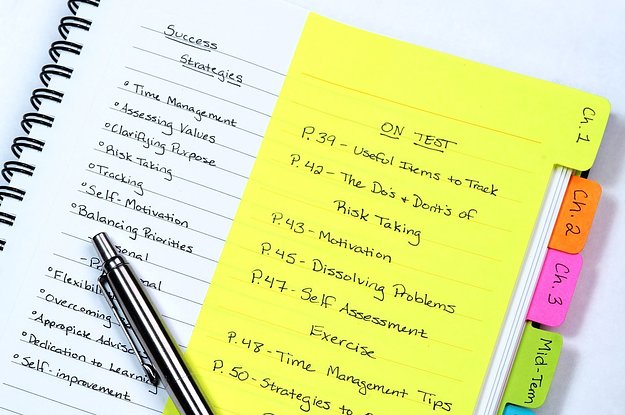 Success
Strategies
° Time Management
° Assessing Values
° Clarifying Purpose
° Risk Taking
° Tracking
° Self-Motivation
° Balancing Priorities
° Overcoming
° Appropiate Advise
° Dedication to Learning
° Self-improvement
ON TEST
P.39 - Useful Items to Track
P.42 - The Do's & Don't's of
Risk Taking
P.43 - Motivation
P.45 - Dissolving Problems
P.47 - Self Assessment
Exercise
P.48 - Time Management Tips
P.50 - Strategies to
Ch. 1
Ch. 2
Ch. 3
Mid-Term